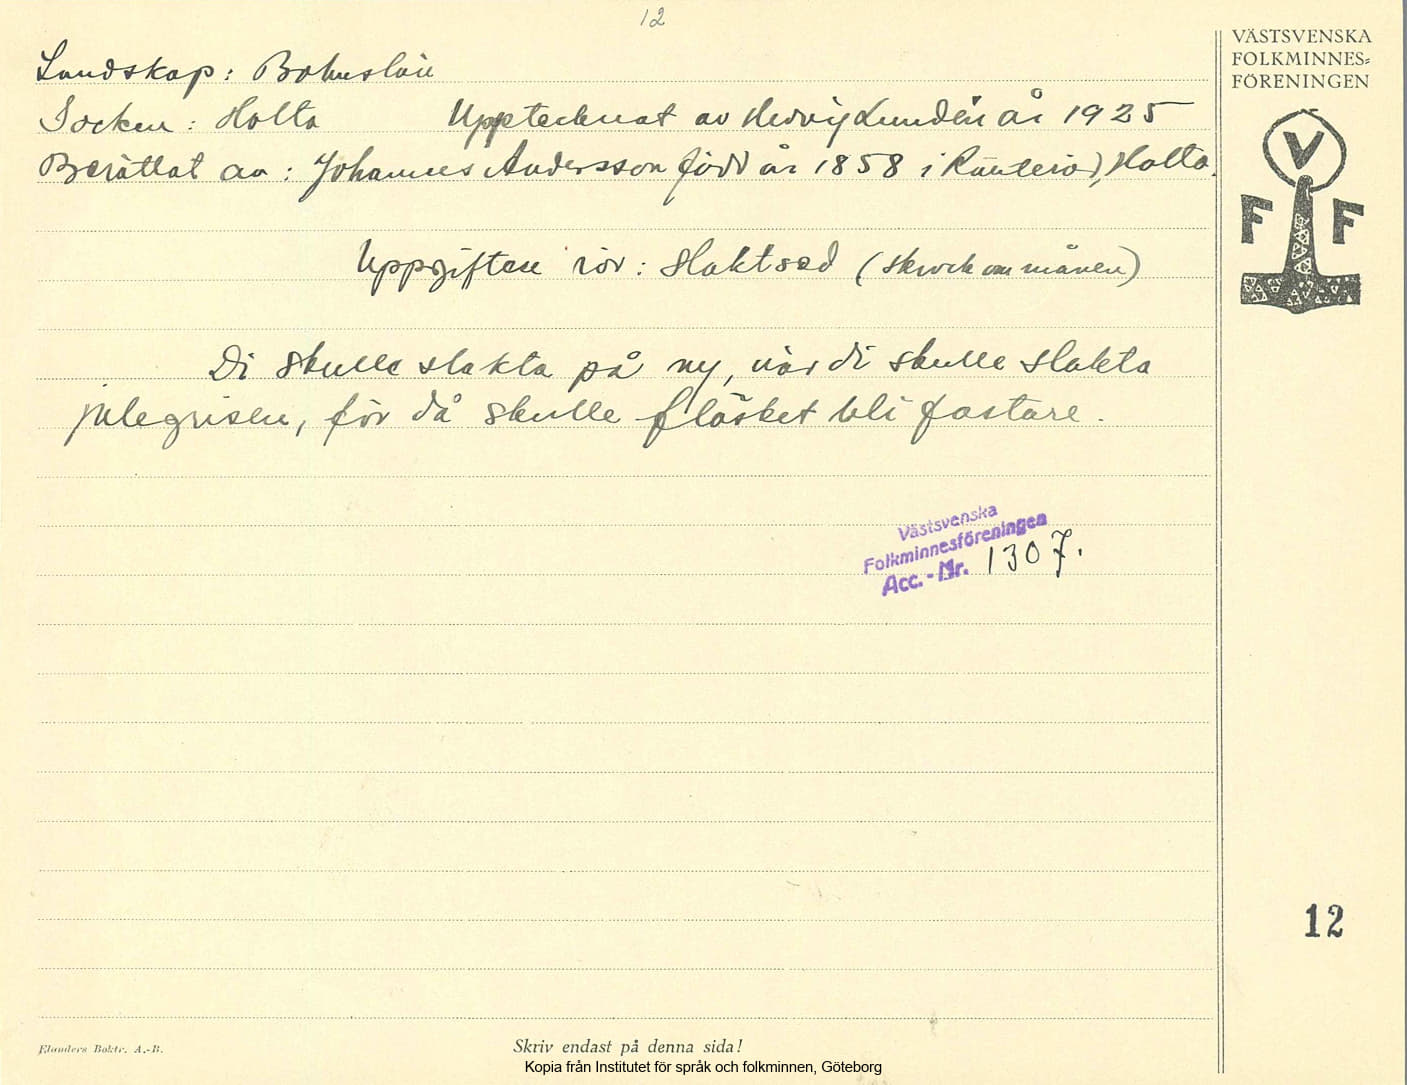 12
Landskap: Bohuslän
Socken: Holta Upptecknat av Hedvig Lundén år 1925
Berättat av: Johannes Andersson född år 1858 i Ranteröd, Holta.
Uppgiften rör: Slaktsed (skrock om månen)
Di skulle slakta på ny, när di skulle slakta
julegrisen, för då skulle fläsket bli fastare.
Västsvenska
Folkminnesföreningen
Acc.-Nr. 1307.
VÄSTSVENSKA
FOLKMINNES-
FÖRENINGEN
V
F F
12
Elanders Boktr. A.-B.
Skriv endast på denna sida!
Kopia från Institutet för språk och folkminnen, Göteborg